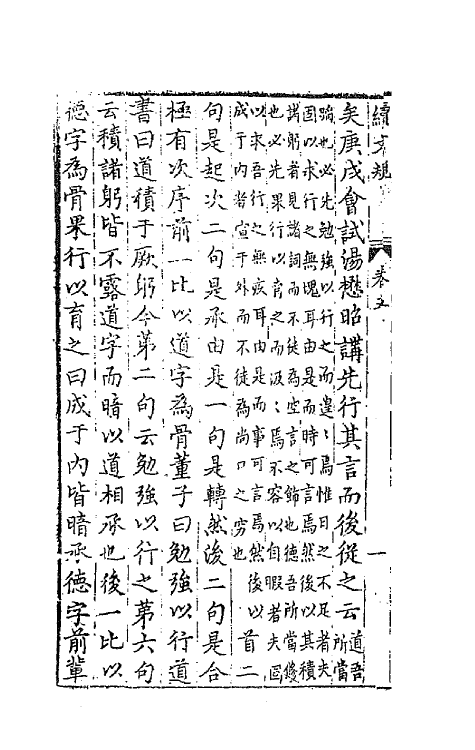 續文規 卷五 一
矣庚戌會試湯懋昭講先行其言而後從之云道吾所當
踐也必先勉強以行之而遑〻焉惟日之不足者夫
固以求行之無愧耳由是而時可言焉然後以其積
諸躬者見諸詞而不徒為空言之飾也德吾所當修
也必先果行以育之而汲〻焉不容以自暇者夫固
以求吾行之無疚耳由是而事可言焉然後以
成于內者宣于外而不徒為尚口之窮也首二
句是起次二句是承由是一句是轉然後二句是合
極有次序前一比以道字為骨董子曰勉強以行道
書曰道積于厥躬今第二句云勉強以行之第六句
云積諸躬皆不露道字而暗以道相承也後一比以
德字為骨果行以育之曰成于內皆暗承德字前輩